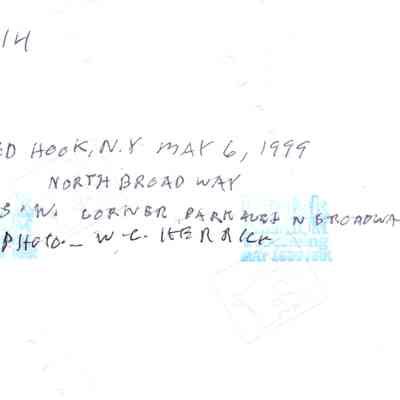 14
ED HOOK, N.Y MAY 6, 1999
NORTH BROADWAY
S. W. CORNER PARK AVE & N BROADWA
PHOTO - W. C. HERRICK